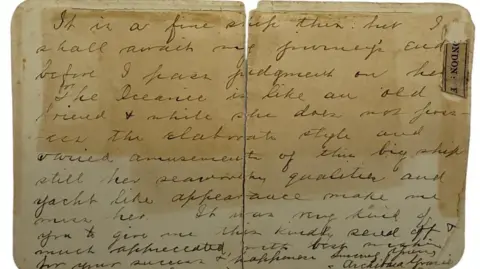 It is a fine ship this but I
shall await my journeys end
before I pass judgment on her.
The Oceanic is like an old
friend & while she does not pos-
ess the elaborate style and
varied amusements of this big ship
still her seaworthy qualities and
yacht like appearance make me
miss her. It was very kind of
you to give me this kindly send off &
much appreciated with best wishes
for your success & happiness
Archibald Gracie
ONDON